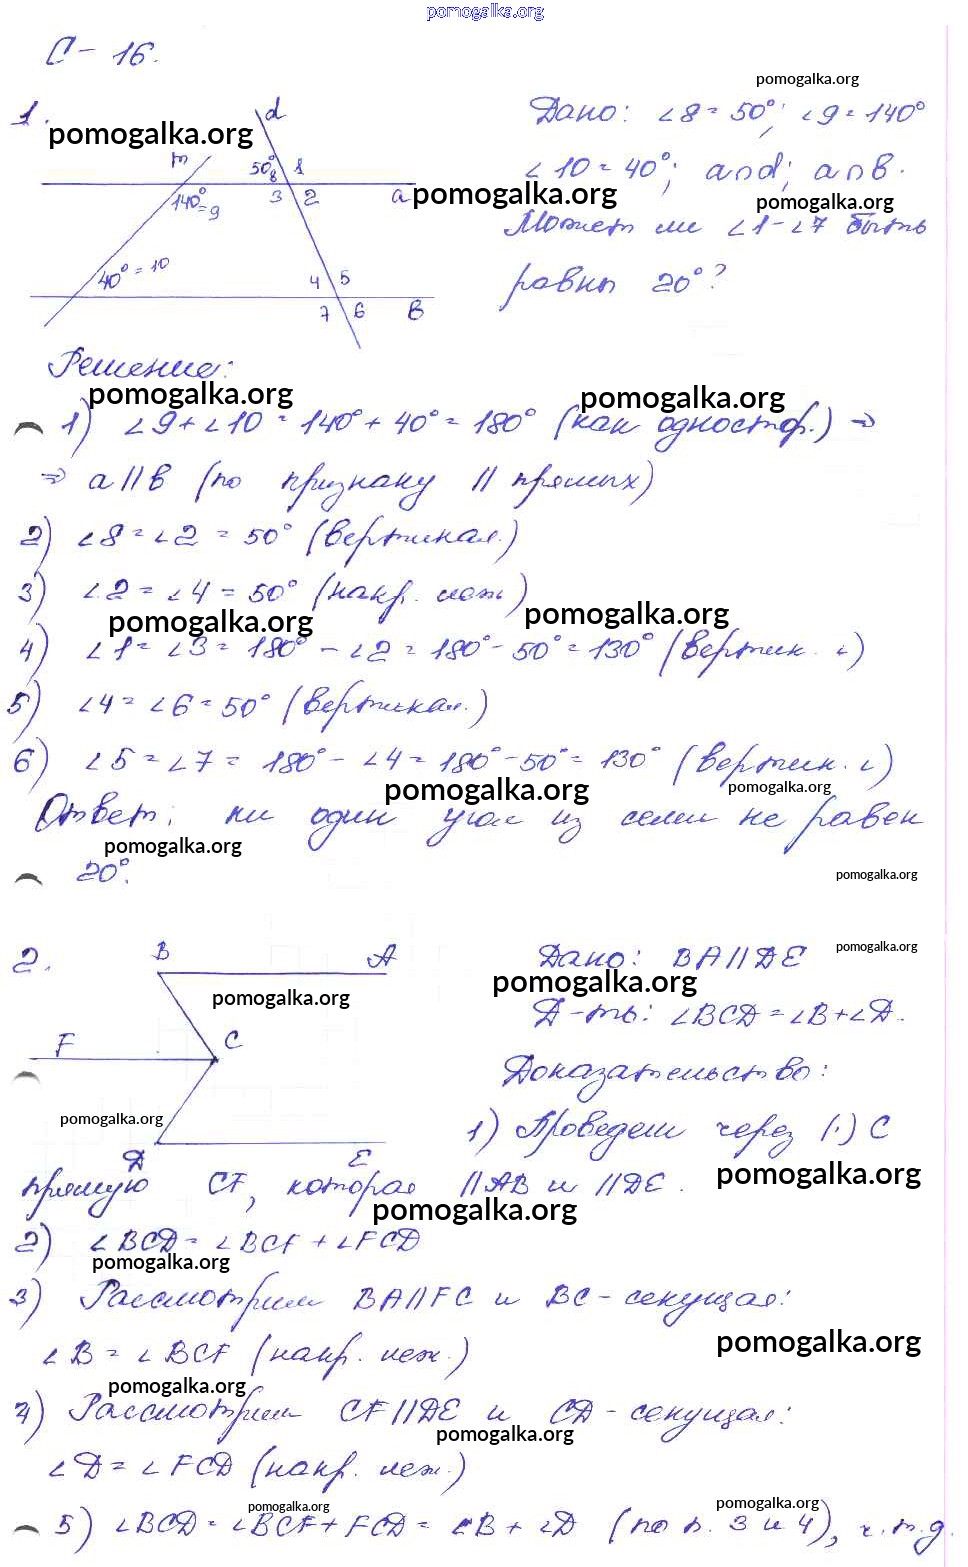 pomogalka.org
С – 16.
pomogalka.org
1.
pomogalka.org
d
m
50°
8
1
140°=9
3
2
a
40°=10
4
5
7
6
в
Дано: ∠8 = 50°; ∠9 = 140°
∠10 = 40°; a∩d; a∩в.
pomogalka.org
pomogalka.org
Может ли ∠1 – ∠7 быть
равны 20°?
Решение:
pomogalka.org
pomogalka.org
1) ∠9 + ∠10 = 140° + 40° = 180° (как одностор.) ⇒
⇒ a // в (по признаку // прямых)
2) ∠8 = ∠2 = 50° (вертикал.)
3) ∠2 = ∠4 = 50° (накр. леж)
pomogalka.org
pomogalka.org
4) ∠1 = ∠3 = 180° – ∠2 = 180° – 50° = 130° (вертик. ∠)
5) ∠4 = ∠6 = 50° (вертикал.)
6) ∠5 = ∠7 = 180° – ∠4 = 180° – 50° = 130° (вертик. ∠)
pomogalka.org
pomogalka.org
Ответ: ни один угол из семи не равен
pomogalka.org
20°.
pomogalka.org
2.
B
A
pomogalka.org
F
C
pomogalka.org
Д
E
Дано: BA // ДE
pomogalka.org
pomogalka.org
Д-ть: ∠BCД = ∠B + ∠Д.
Доказательство:
1) Проведем через (·) C
pomogalka.org
прямую CF, которая // AB и // ДE.
pomogalka.org
2) ∠BCД = ∠BCF + ∠FCД
pomogalka.org
3) Рассмотрим BA // FC и BC – секущая:
pomogalka.org
∠B = ∠BCF (накр. леж.)
pomogalka.org
4) Рассмотрим CF // ДE и CД – секущая:
pomogalka.org
∠Д = ∠FCД (накр. леж.)
pomogalka.org
pomogalka.org
5) ∠BCД = ∠BCF + FCД = ∠B + ∠Д (по п. 3 и 4), ч.т.д.